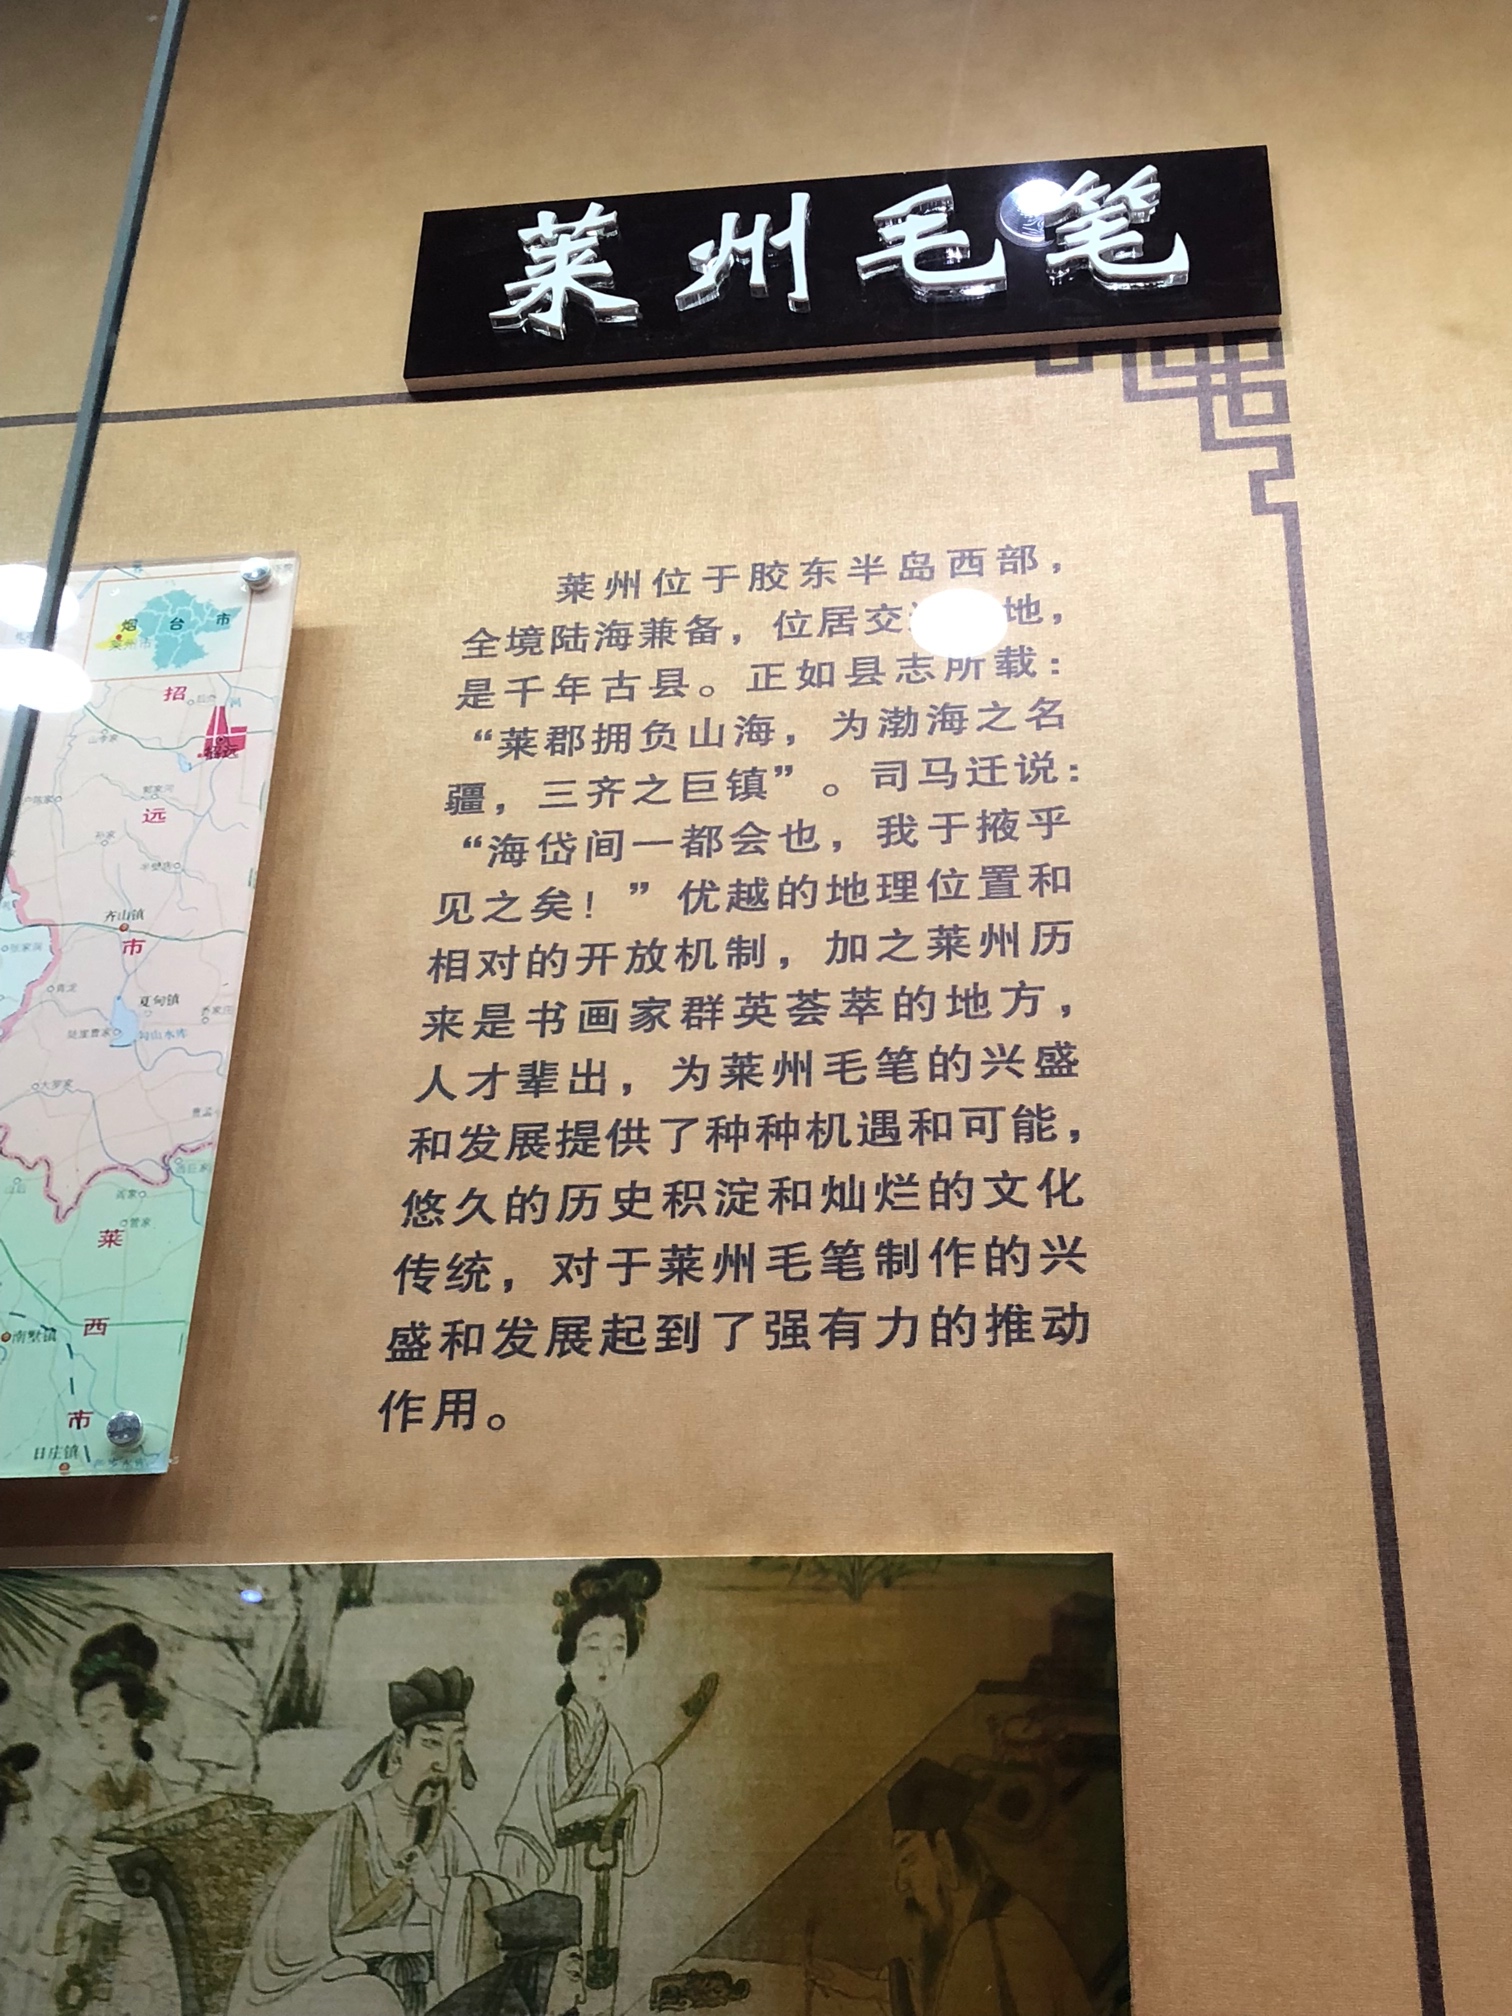 莱州毛笔
莱州位于胶东半岛西部，
全境陆海兼备，位居交 地，
是千年古县。正如县志所载：
“莱郡拥负山海，为渤海之名
疆，三齐之巨镇”。司马迁说：
“海岱间一都会也，我于掖乎
见之矣！”优越的地理位置和
相对的开放机制，加之莱州历
来是书画家群英荟萃的地方，
人才辈出，为莱州毛笔的兴盛
和发展提供了种种机遇和可能，
悠久的历史积淀和灿烂的文化
传统，对于莱州毛笔制作的兴
盛和发展起到了强有力的推动
作用。
烟台市
莱州市
招
招远
郭家河
远
孙家
齐山镇
市
张家洞
夏甸镇
勾山水库
大罗家
莱
管家
西
南墅镇
市
日庄镇